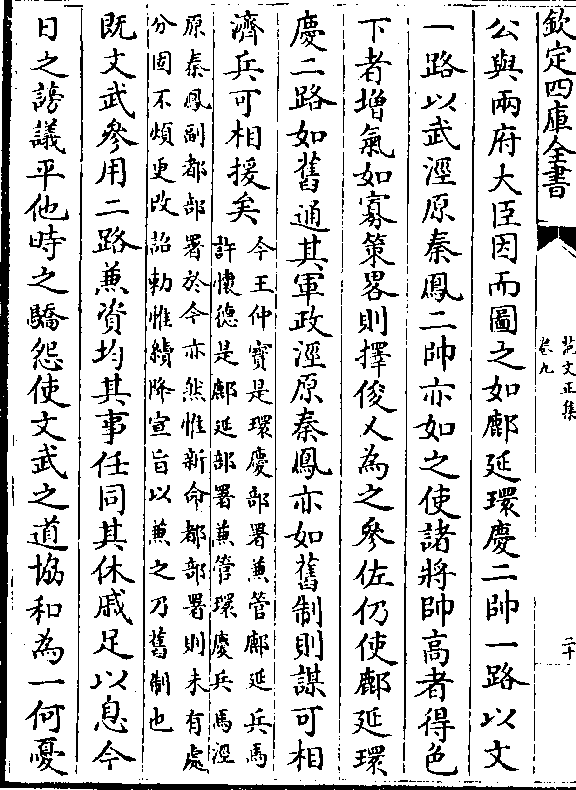 欽定四庫全書
范文正集
卷九
二十
公與兩府大臣因而圖之如鄜延環慶二帥一路以文
一路以武涇原秦鳳二帥亦如之使諸將帥高者得色
下者增氣如寡策畧則擇俊乂為之參佐仍使鄜延環
慶二路如舊通其軍政涇原秦鳳亦如舊制則謀可相
濟兵可相援矣
今王仲寶是環慶部署兼管鄜延兵馬
許懷德是鄜延部署兼管環慶兵馬涇
原秦鳳副都部署於今亦然惟新命都部署則未有處
分固不煩更改詔勅惟續降宣旨以兼之乃舊制也
既文武參用二路兼資均其事任同其休戚足以息今
日之謗議平他時之驕怨使文武之道協和為一何憂